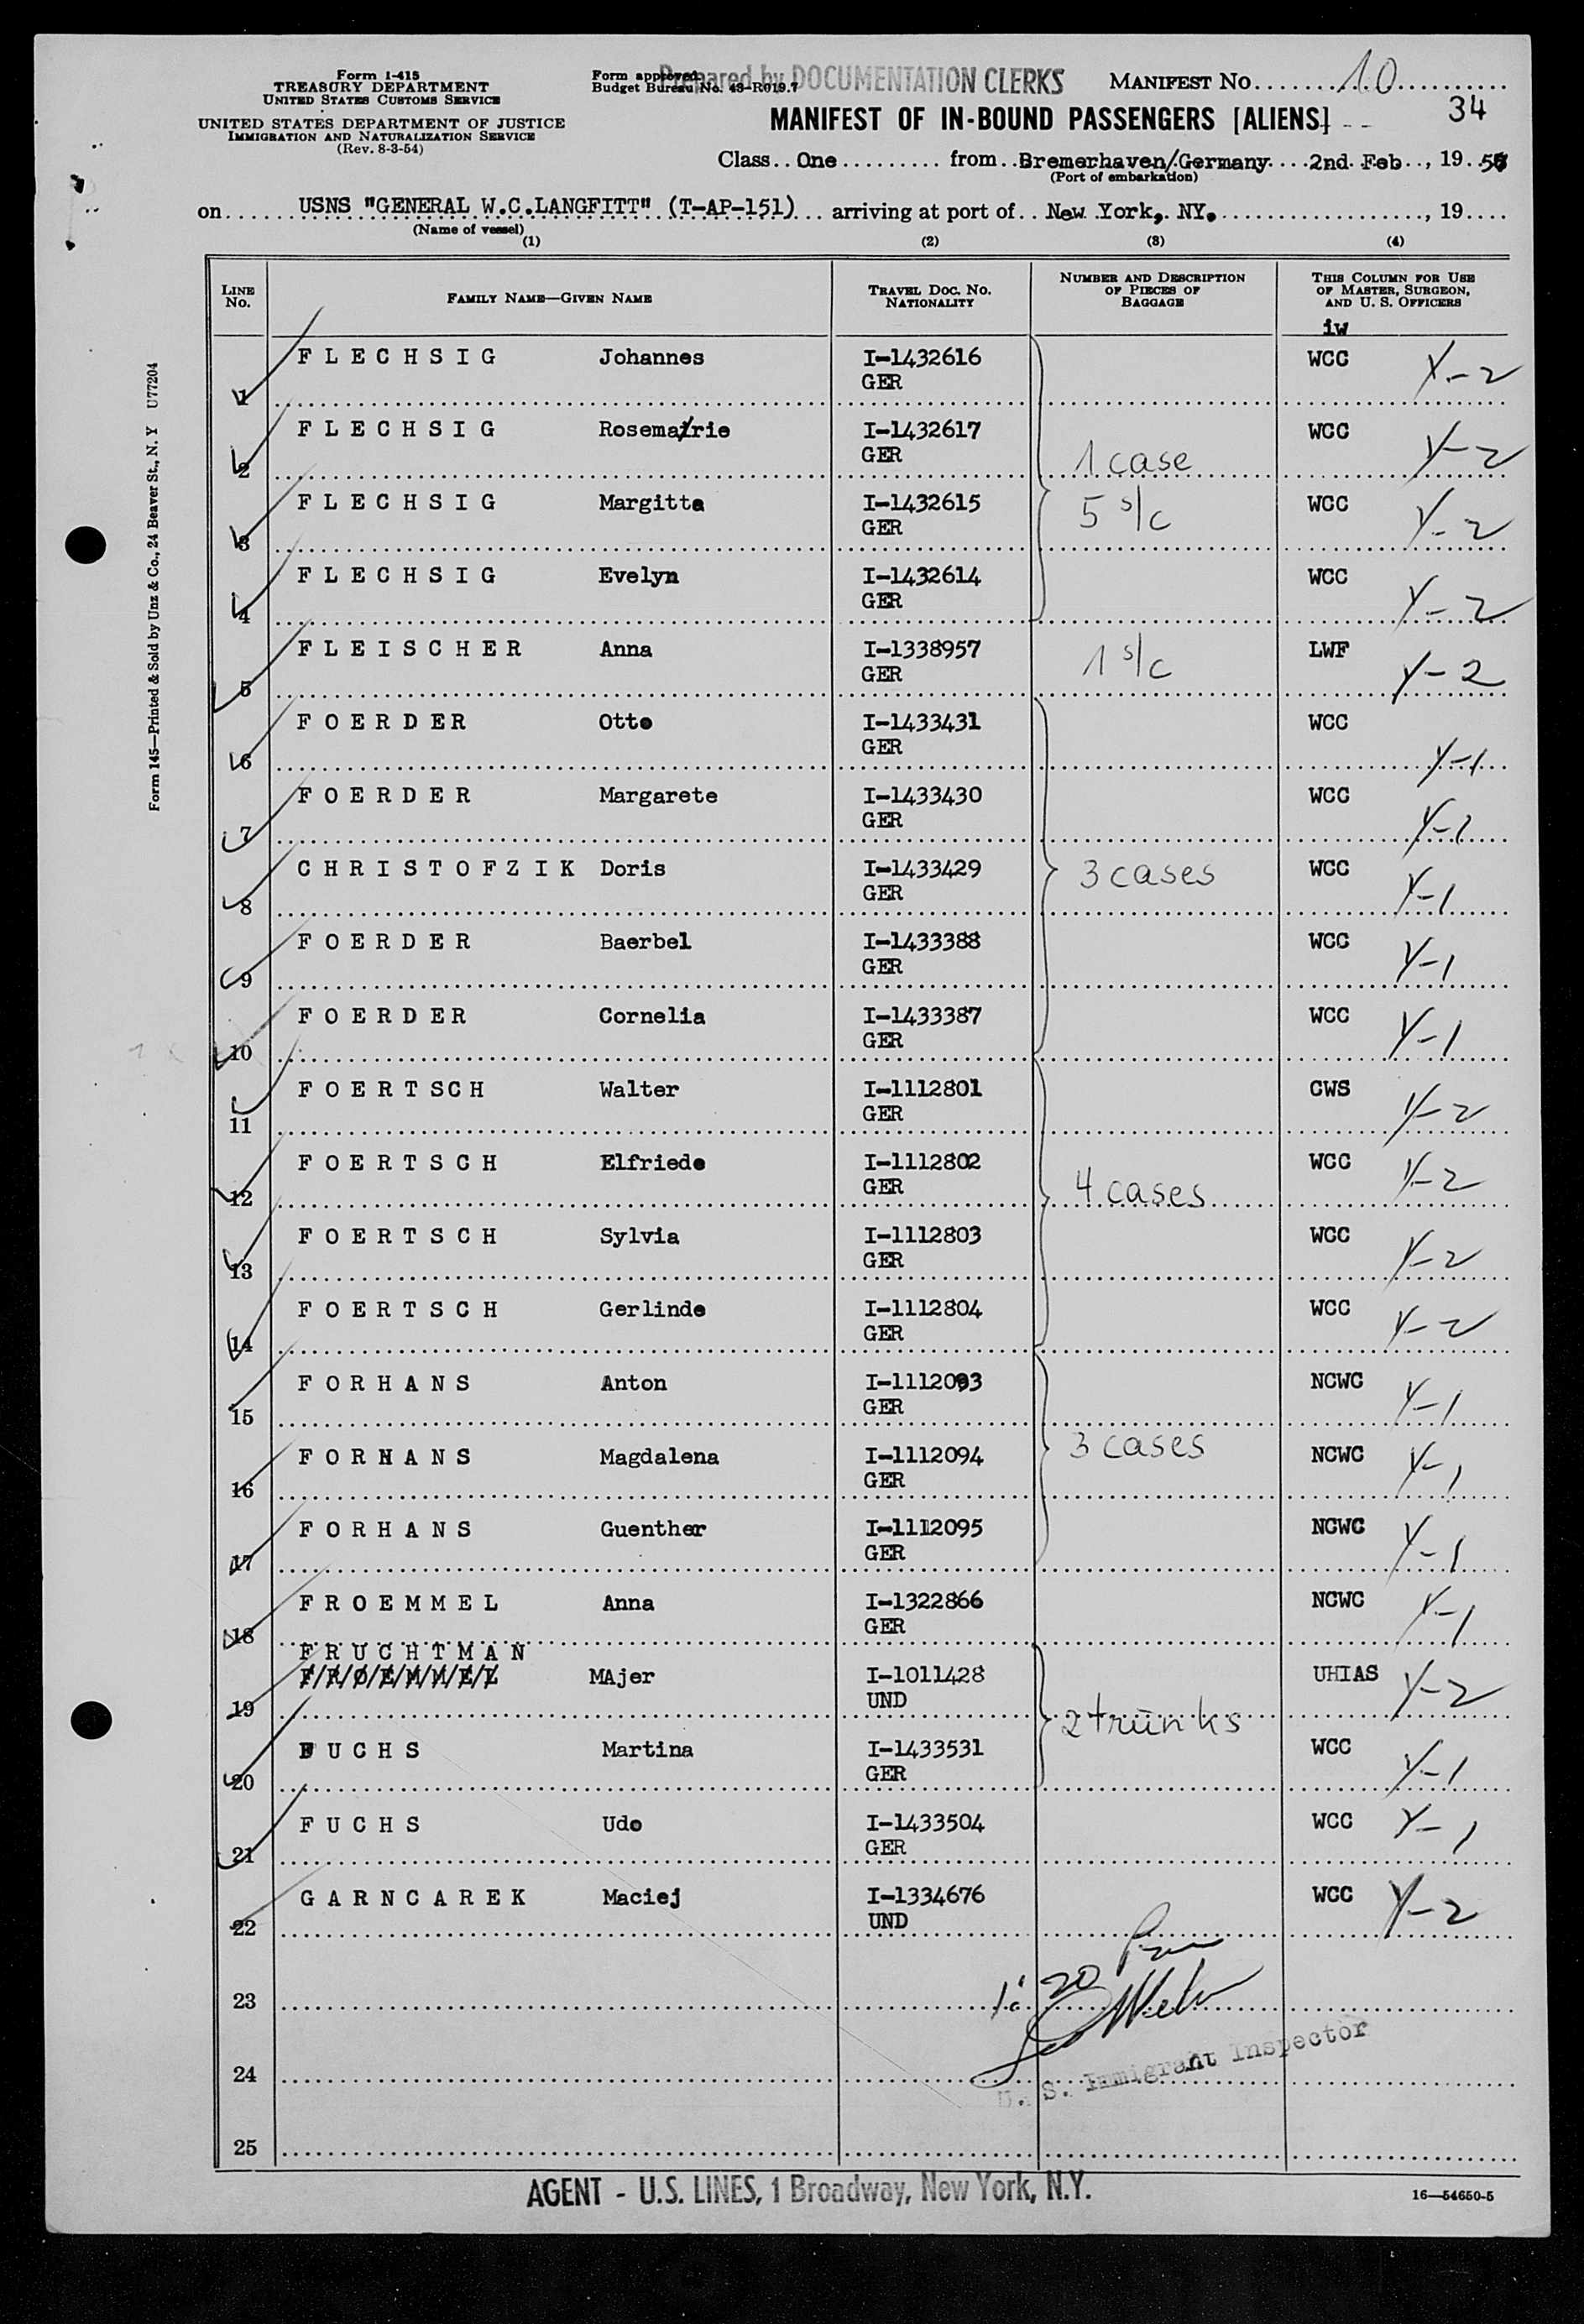 Form I-415
TREASURY DEPARTMENT
UNITED STATES CUSTOMS SERVICE
UNITED STATES DEPARTMENT OF JUSTICE
IMMIGRATION AND NATURALIZATION SERVICE
(Rev. 8-3-54)
Form approved.
Budget Bureau No. 43-R019.7
Prepared by DOCUMENTATION CLERKS
MANIFEST NO. 10
34
MANIFEST OF IN-BOUND PASSENGERS [ALIENS]
Class One from Bremerhaven/Germany 2nd Feb , 19
(Port of embarkation)
on USNS "GENERAL W.C.LANGFITT" (T-AP-151) arriving at port of New York, NY. , 19
(Name of vessel)
(1) (2) (3) (4)
LINE NO. FAMILY NAME—GIVEN NAME TRAVEL DOC. NO. NATIONALITY NUMBER AND DESCRIPTION OF PIECES OF BAGGAGE THIS COLUMN FOR USE OF MASTER, SURGEON, AND U. S. OFFICERS
iw
1 FLECHSIG Johannes I-1432616 GER WCC Y-2
2 FLECHSIG Rosemarie I-1432617 GER 1 case WCC Y-2
3 FLECHSIG Margitta I-1432615 GER 5 s/c WCC Y-2
4 FLECHSIG Evelyn I-1432614 GER WCC Y-2
5 FLEISCHER Anna I-1338957 GER 1 s/c LWF Y-2
6 FOERDER Otto I-1433431 GER WCC Y-1
7 FOERDER Margarete I-1433430 GER WCC Y-1
8 CHRISTOFZIK Doris I-1433429 GER 3 cases WCC Y-1
9 FOERDER Baerbel I-1433388 GER WCC Y-1
10 FOERDER Cornelia I-1433387 GER WCC Y-1
11 FOERTSCH Walter I-1112801 GER CWS Y-2
12 FOERTSCH Elfriede I-1112802 GER 4 cases WCC Y-2
13 FOERTSCH Sylvia I-1112803 GER WCC Y-2
14 FOERTSCH Gerlinde I-1112804 GER WCC Y-2
15 FORHANS Anton I-1112093 GER NCWC Y-1
16 FORHANS Magdalena I-1112094 GER 3 cases NCWC Y-1
17 FORHANS Guenther I-1112095 GER NCWC Y-1
18 FROEMMEL Anna I-1322866 GER NCWC Y-1
FRUCHTMAN
19 F/R/O/E/M/M/E/L MAjer I-1011428 UND 2 trunks UHIAS Y-2
20 FUCHS Martina I-1433531 GER WCC Y-1
21 FUCHS Udo I-1433504 GER WCC Y-1
22 GARNCAREK Maciej I-1334676 UND WCC Y-2
23 1:20 Pm
24
U. S. Immigrant Inspector
25
AGENT - U.S. LINES, 1 Broadway, New York, N.Y.
16—54650-5
Form 145—Printed & Sold by Unz & Co., 24 Beaver St., N. Y U77204